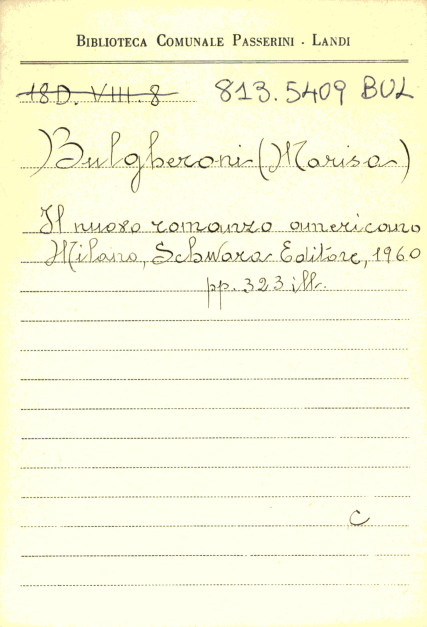 BIBLIOTECA COMUNALE PASSERINI - LANDI
18D. VIII. 8 813.5409 BUL
Bulgheroni (Marisa)
Il nuovo romanzo americano
Milano, Schwarz Editore, 1960
pp. 323 ill.
C